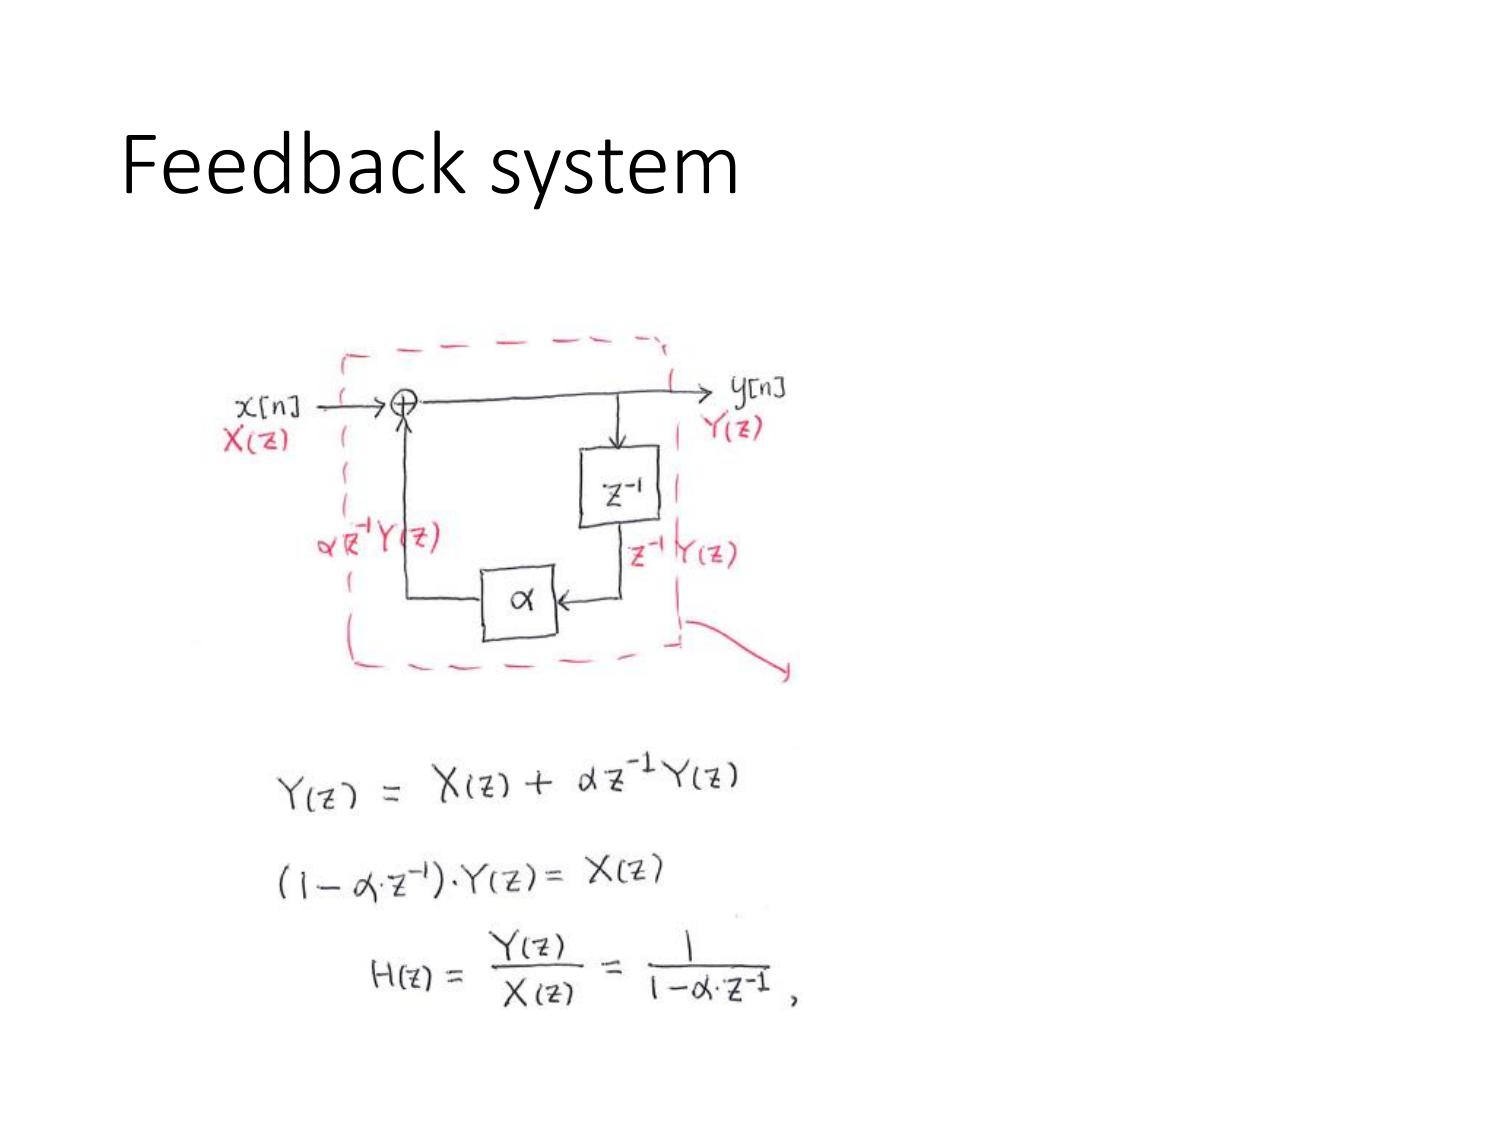 Feedback system
x[n]
X(z)
y[n]
Y(z)
z⁻¹
αz⁻¹Y(z)
z⁻¹Y(z)
α
Y(z) = X(z) + αz⁻¹Y(z)
(1 – α·z⁻¹)·Y(z) = X(z)
H(z) = Y(z)/X(z) = 1/(1–α·z⁻¹) ,